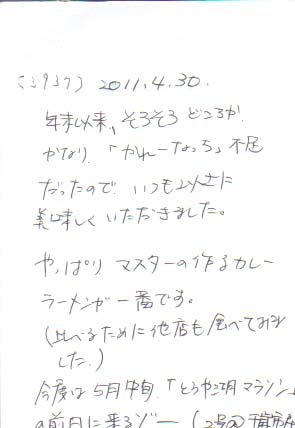 (3937) 2011.4.30.
年末以来、そろそろ どころか
かなり、「かれーなっち」不足
だったので いつも以上に
美味しく いただきました。
やっぱり マスターの作るカレー
ラーメンが一番です。
(比べるために他店も食べてみま
した。)
今度は 5月中旬、「とうや湖マラソン」
の前日に来るゾー (2号の